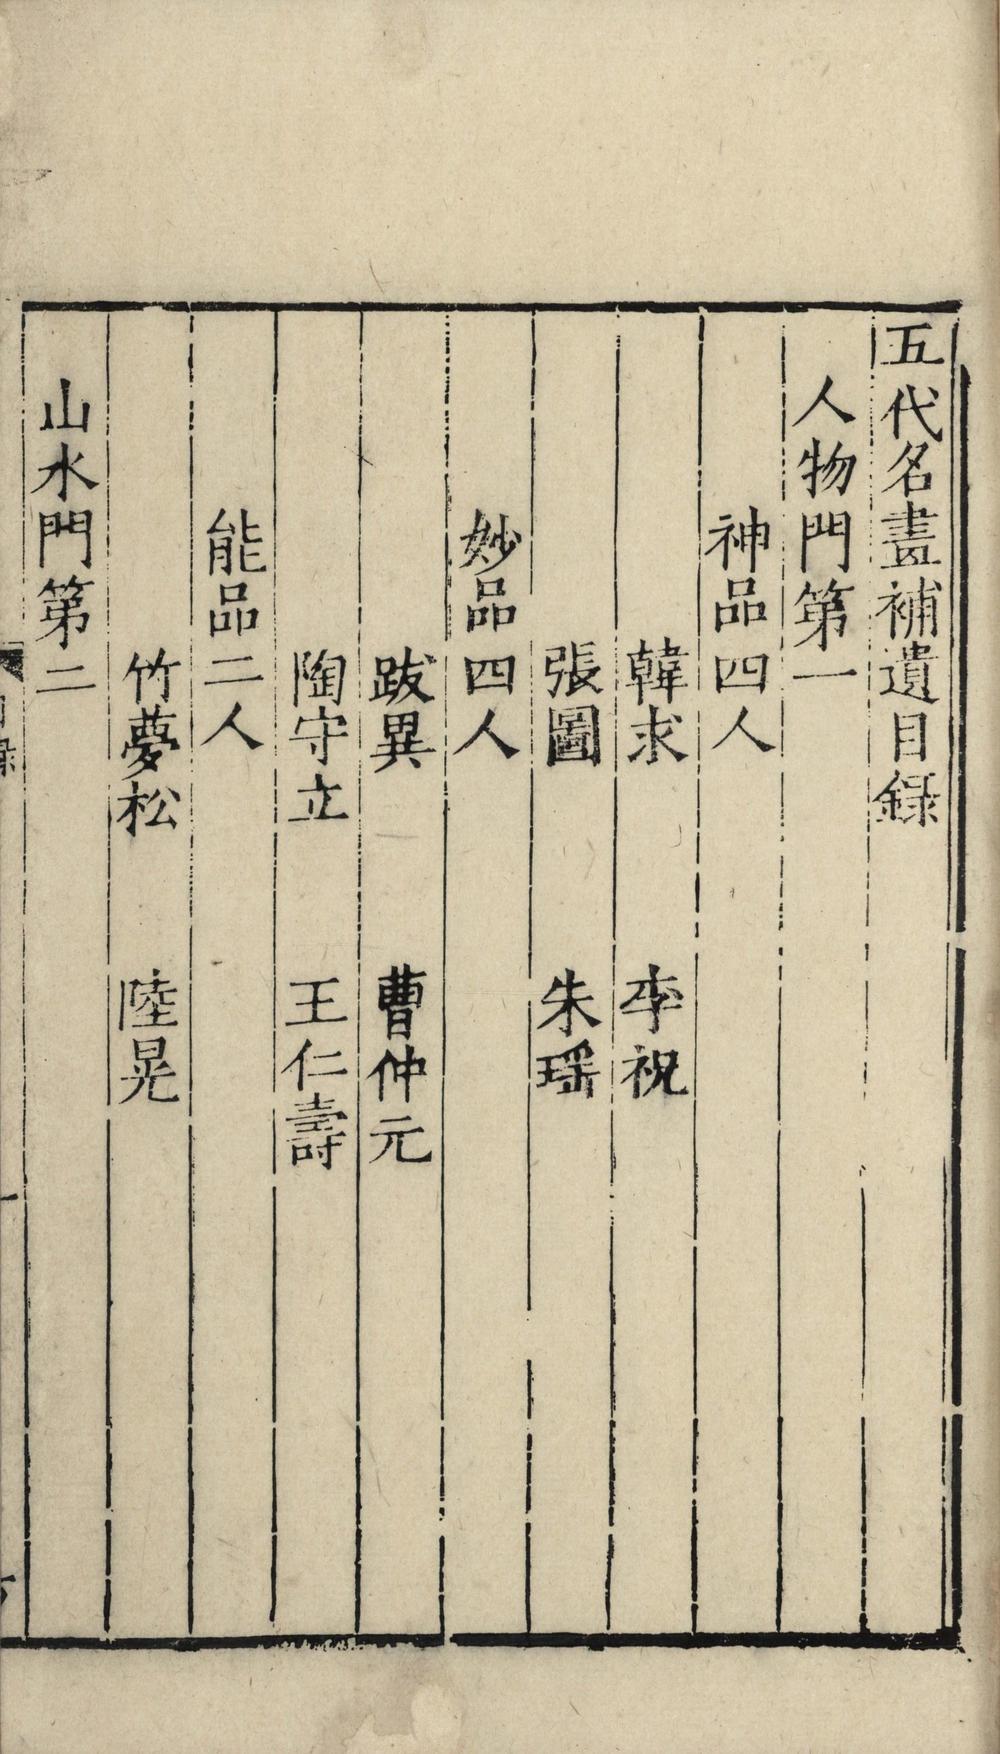 五代名畫補遺目録
人物門第一
神品四人
韓求　李祝
張圖　朱瑶
妙品四人
跋異　曹仲元
陶守立　王仁壽
能品二人
竹夢松　陸晃
山水門第二